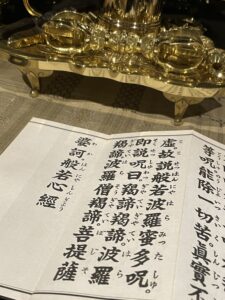 等呪能除一切苦眞實不
虚故説般若波羅蜜多呪
即説呪曰羯諦羯諦波羅
羯諦波羅僧羯諦菩提薩
婆訶般若心經